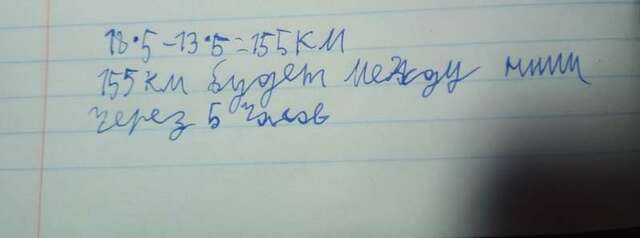 18•5-13•5=155КМ
155км будет между ними
через 5 часов